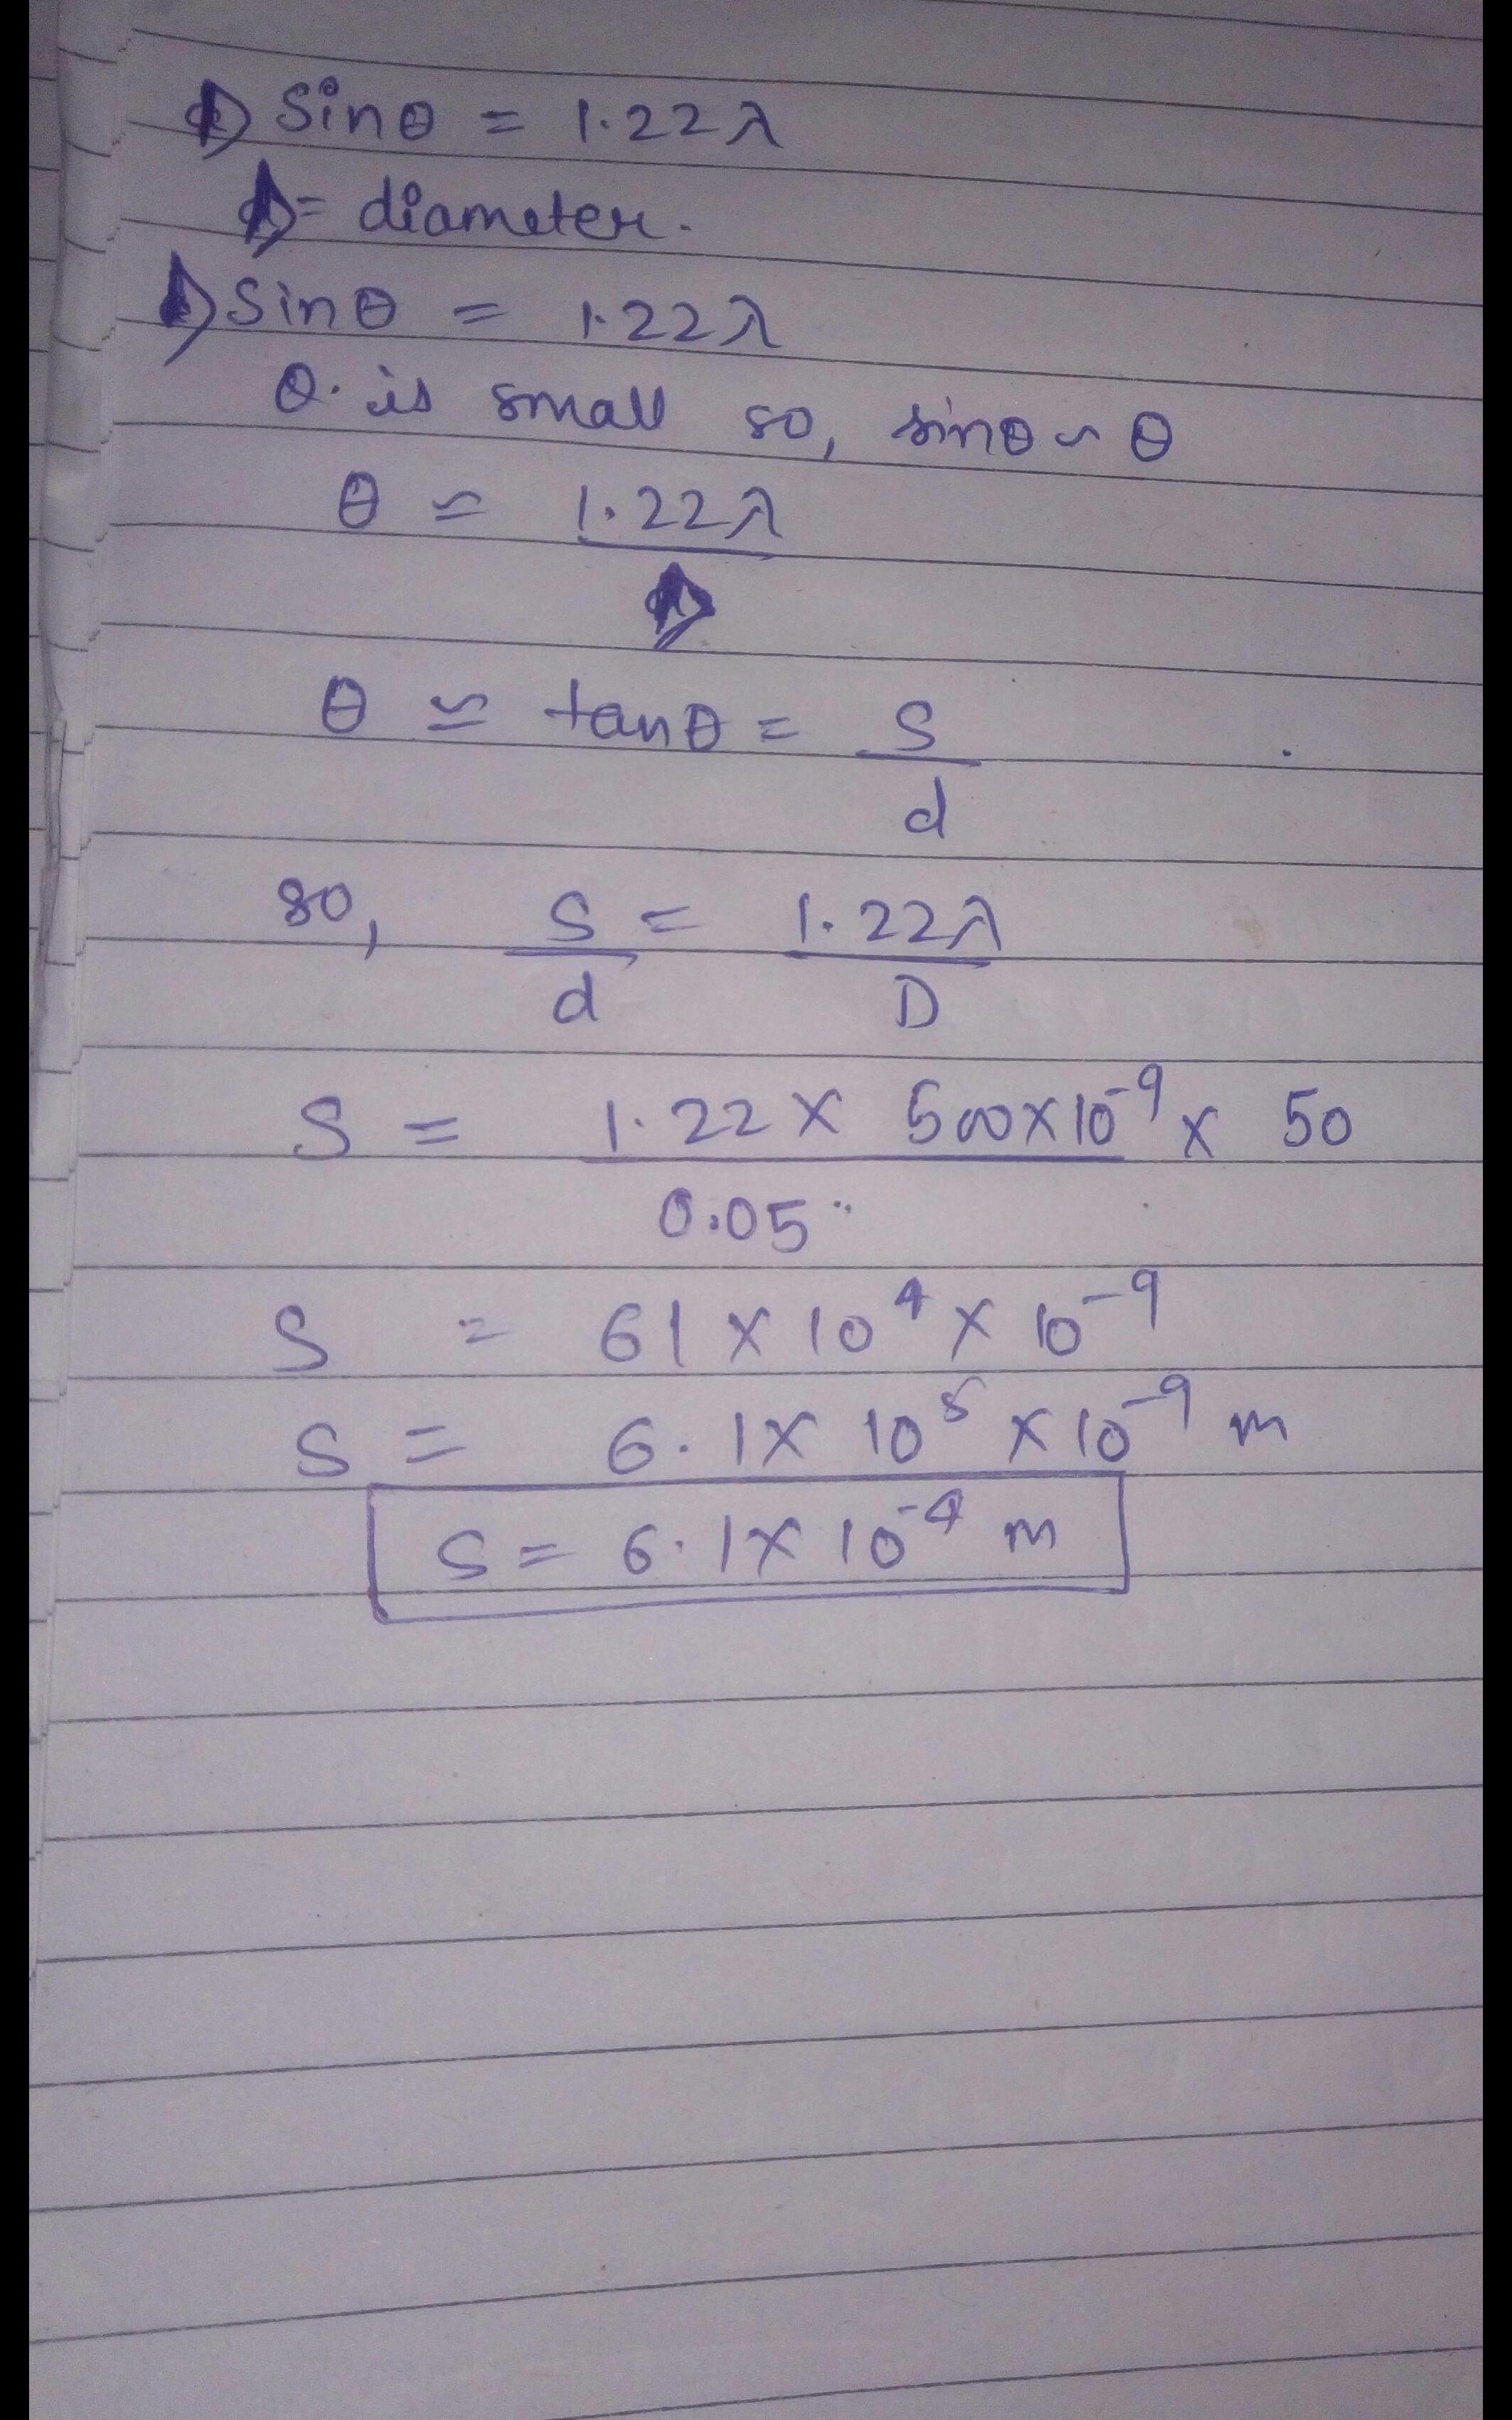 D sinθ = 1.22λ
D = diameter.
D sinθ = 1.22λ
θ. is small so, sinθ ~ θ
θ ≃ 1.22λ
D
θ ≃ tanθ = S
d
so, S = 1.22λ
d D
S = 1.22 × 500×10⁻⁹ × 50
0.05
S = 61 × 10⁴ × 10⁻⁹
S = 6.1× 10⁵ × 10⁻⁹ m
S = 6.1× 10⁻⁴ m